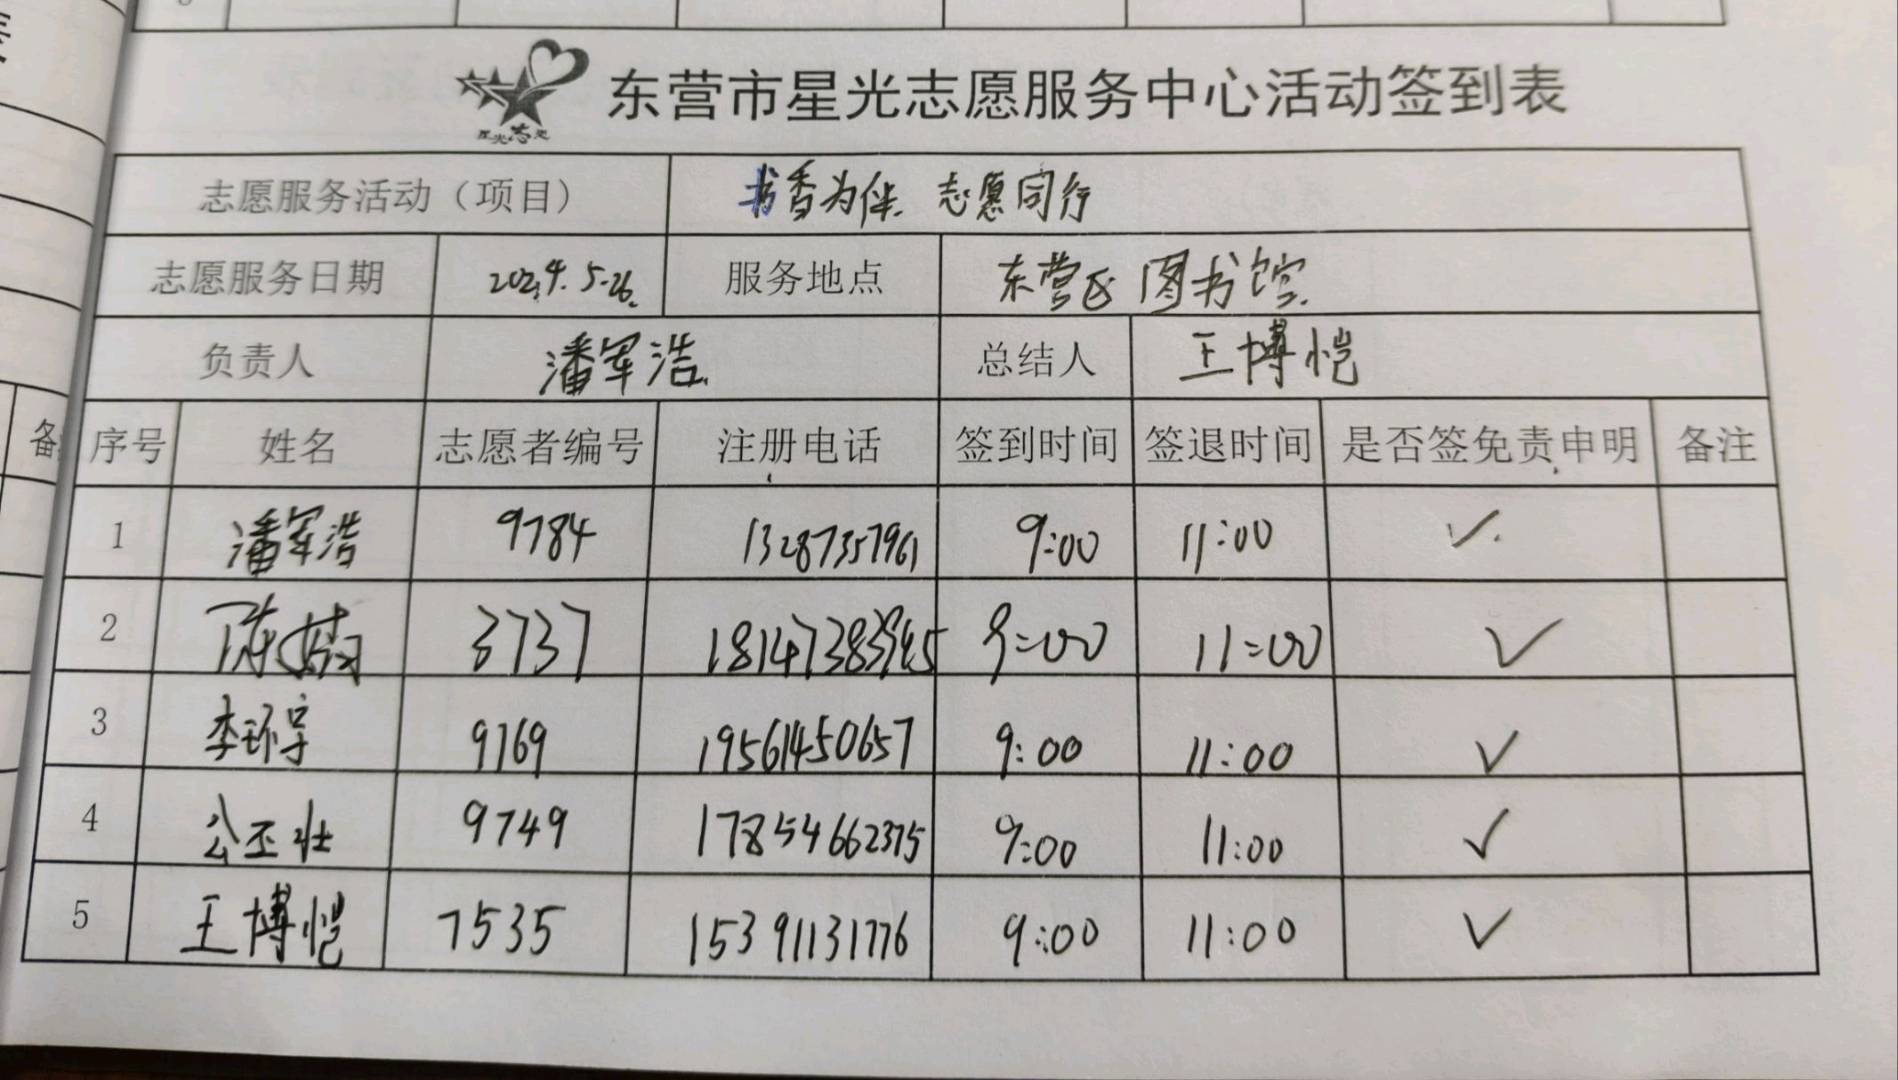 东营市星光志愿服务中心活动签到表
星光志愿
志愿服务活动（项目） 书香为伴 志愿同行
志愿服务日期 2024.5.26. 服务地点 东营区图书馆
负责人 潘军浩 总结人 王博恺
备 序号 姓名 志愿者编号 注册电话 签到时间 签退时间 是否签免责申明 备注
1 潘军浩 9784 13287357961 9:00 11:00 ✓
2 陈 3737 9:00 11:00 ✓
3 李环宇 9169 19561450657 9:00 11:00 ✓
4 公丕壮 9749 17854662375 9:00 11:00 ✓
5 王博恺 7535 15391131776 9:00 11:00 ✓